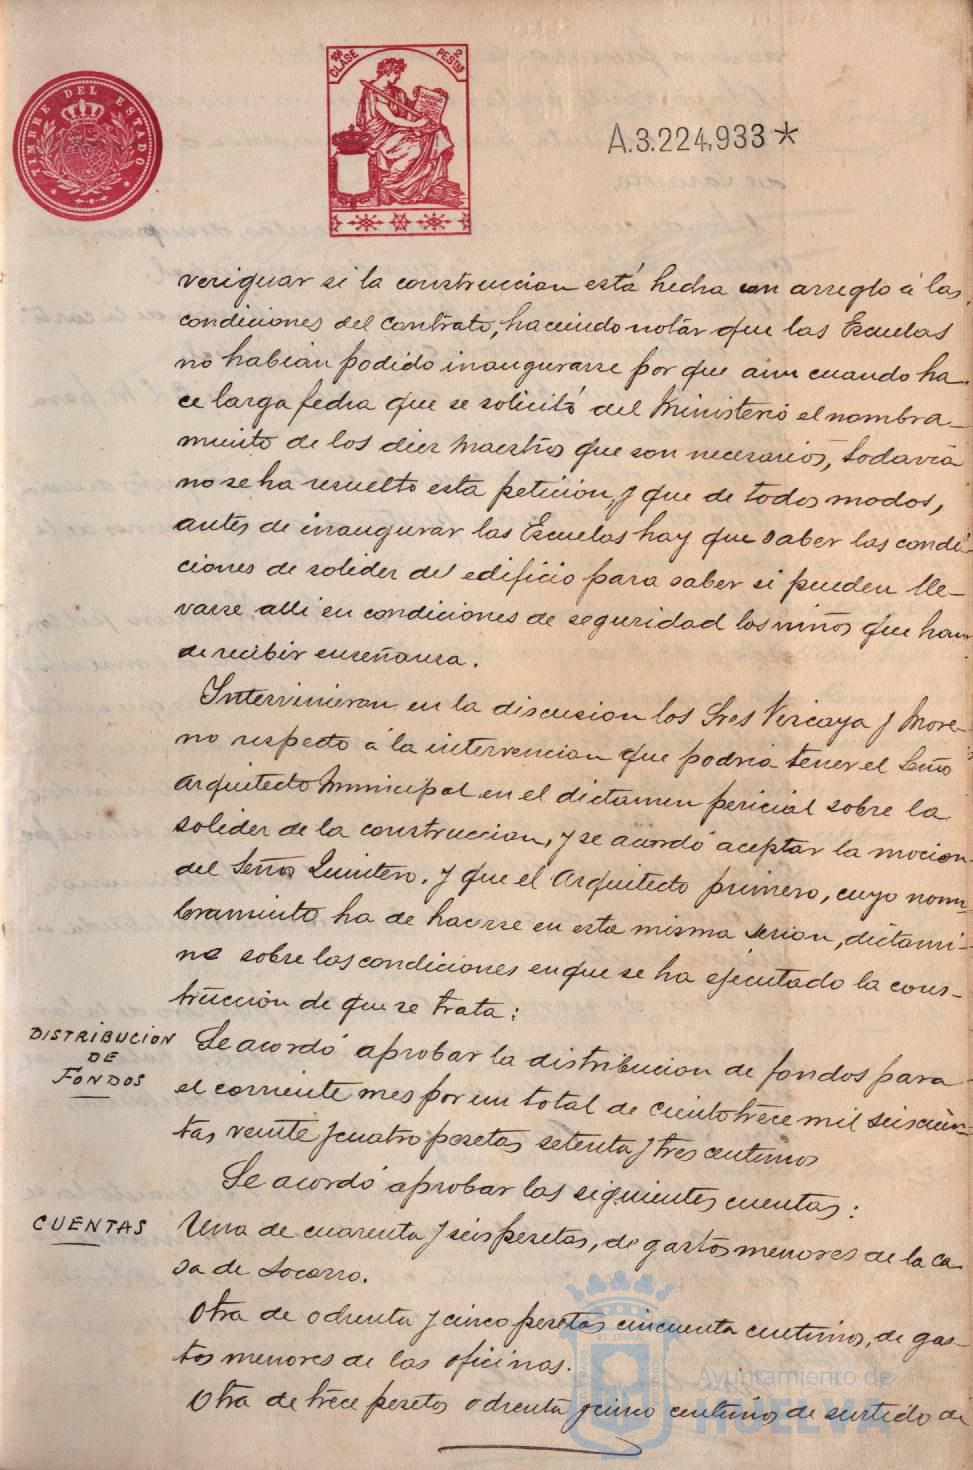 TIMBRE DEL ESTADO
10ª CLASE
2 PESTAS
A.3.224,933*
veriguar si la construccion está hecha con arreglo á las
condiciones del contrato, haciendo notar que las Escuelas
no habian podido inaugurarse por que aun cuando ha-
ce larga fecha que se solicitó del Ministerio el nombra-
miento de los diez Maestros que son necesarios, todavia
no se ha resuelto esta peticion, y que de todos modos,
antes de inaugurar las Escuelas hay que saber las condi-
ciones de solidez del edificio para saber si pueden lle-
varse alli en condiciones de seguridad los niños que han
de recibir enseñanza.
Intervinieron en la discusion los Sres Vizcaya y More-
no respecto á la intervencion que podria tener el Señor
Arquitecto Municipal en el dictamen pericial sobre la
solidez de la construccion, y se acordó aceptar la mocion
del Señor Quintero. y que el Arquitecto primero, cuyo nom-
bramiento ha de hacerse en esta misma sesion, dictami-
ne sobre las condiciones en que se ha ejecutado la cons-
truccion de que se trata:
DISTRIBUCION
DE
FONDOS
Se acordó aprobar la distribucion de fondos para
el corriente mes por un total de ciento trece mil seiscien-
tas veinte y cuatro pesetas setenta y tres centimos
Se acordó aprobar las siguientes cuentas:
CUENTAS
Una de cuarenta y seis pesetas, de gastos menores de la ca
sa de Socorro.
Otra de ochenta y cinco pesetas cincuenta centimos, de gas-
tos menores de las oficinas.
Otra de trece pesetas ochenta y cinco centimos de surtido de
Ayuntamiento de
HUELVA